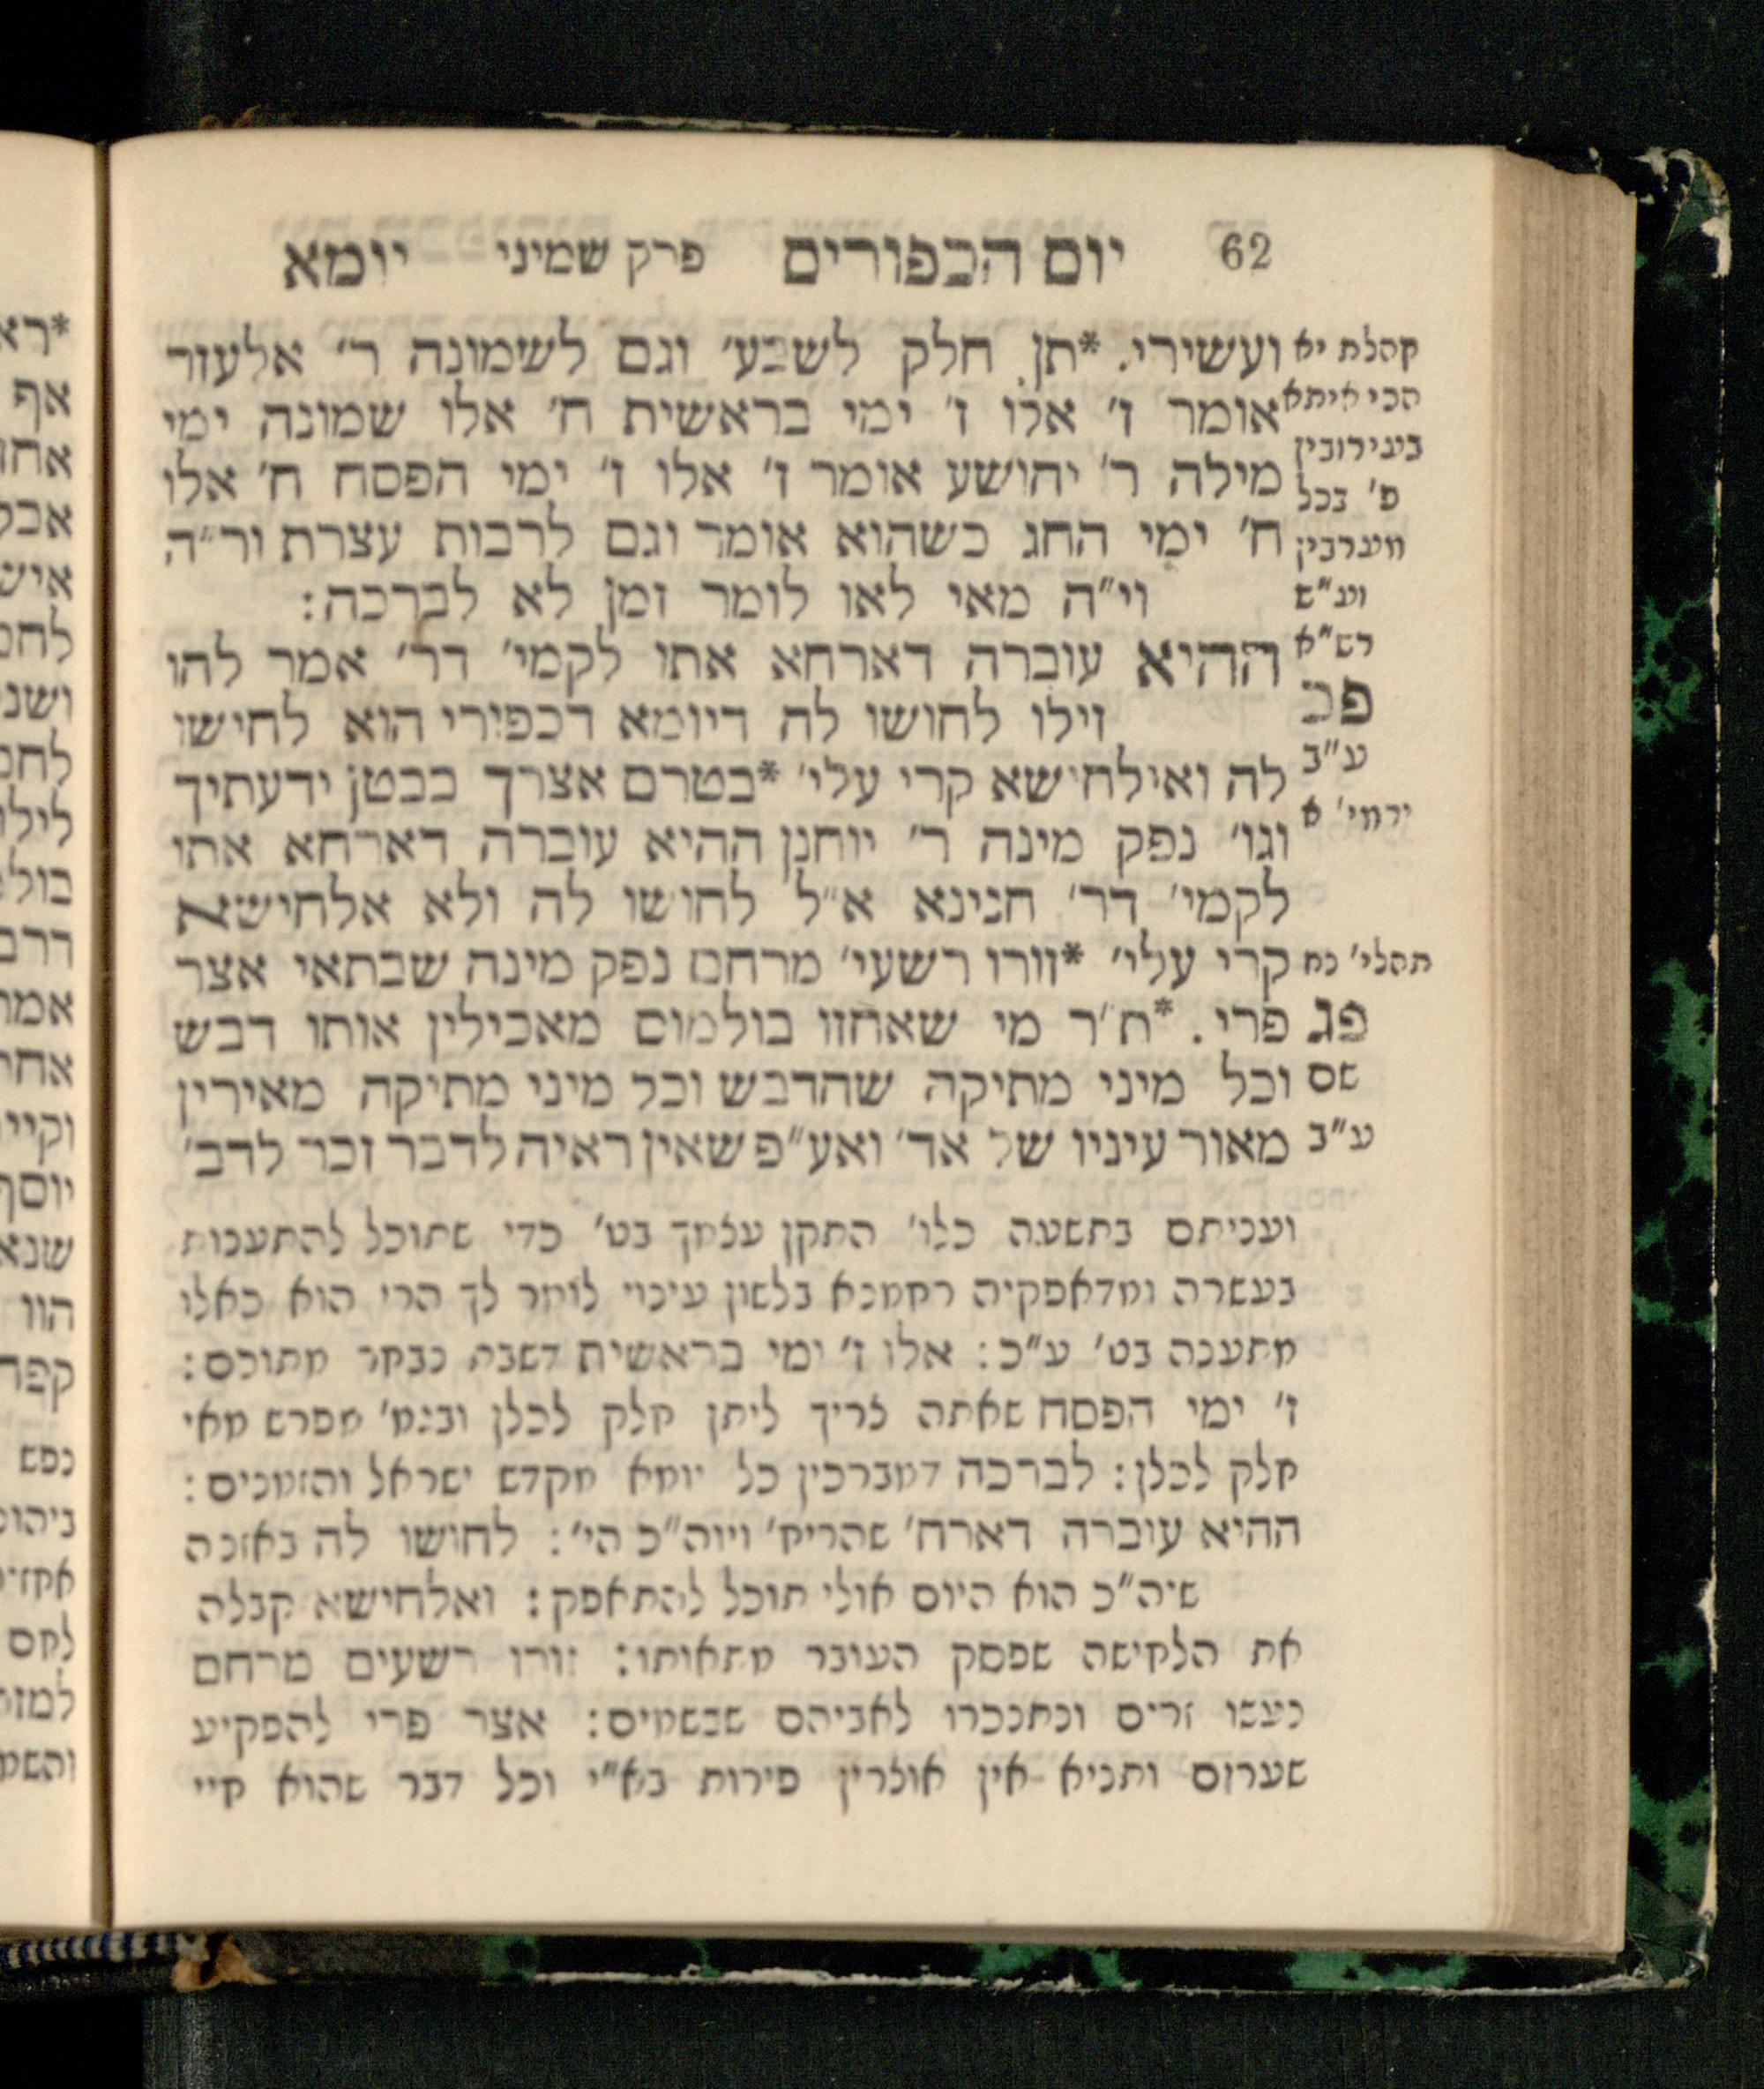 62 יום הכפורים פרק שמיני יומא
קהלת יא
הכי איתא
בעירובין
פ' בכל
מערבין
וע"ש
רש"א
פב
ע"ב
ירמי' א
תהלי' נח
פג
שם
ע"ב
ועשירי. *תן חלק לשבע' וגם לשמונה ר' אלעזר
אומר ז' אלו ז' ימי בראשית ח' אלו שמונה ימי
מילה ר' יהושע אומר ז' אלו ז' ימי הפסח ח' אלו
ח' ימי החג כשהוא אומר וגם לרבות עצרת ור"ה
וי"ה מאי לאו לומר זמן לא לברכה:
ההיא עוברה דארחא אתו לקמי' דר' אמר להו
זילו לחושו לה דיומא דכפירי הוא לחישו
לה ואילחישא קרי עלי' *בטרם אצרך בבטן ידעתיך
וגו' נפק מינה ר' יוחנן ההיא עוברה דארחא אתו
לקמי' דר' חנינא א"ל לחושו לה ולא אלחישא
קרי עלי' *זורו רשעי' מרחם נפק מינה שבתאי אצר
פרי. *ת"ר מי שאחזו בולמוס מאכילין אותו דבש
וכל מיני מתיקה שהדבש וכל מיני מתיקה מאירין
מאור עיניו של אד' ואע"פ שאין ראיה לדבר זכר לדב'
ועניתם בתשעה כלו' התקן עצמך בט' כדי שתוכל להתענות
בעשרה ומדאפקיה רחמנא בלשון עינוי לומר לך הרי הוא כאלו
מתענה בט' ע"כ: אלו ז' ימי בראשית דשבת נבחר מתוכם:
ז' ימי הפסח שאתה צריך ליתן חלק לכלן ובגמ' מפרש מאי
חלק לכלן: לברכה דמברכין כל יומא מקדש ישראל והזמנים:
ההיא עוברה דארח' שהריח' ויוה"כ הי': לחושו לה באזנה
שיה"כ הוא היום אולי תוכל להתאפק: ואלחישא קבלה
את הלחישה שפסק העובר מתאותו: זורו רשעים מרחם
נעשו זרים ונתנכרו לאביהם שבשמים: אצר פרי להפקיע
שערים ותניא אין אוצרין פירות בא"י וכל דבר שהוא חיי